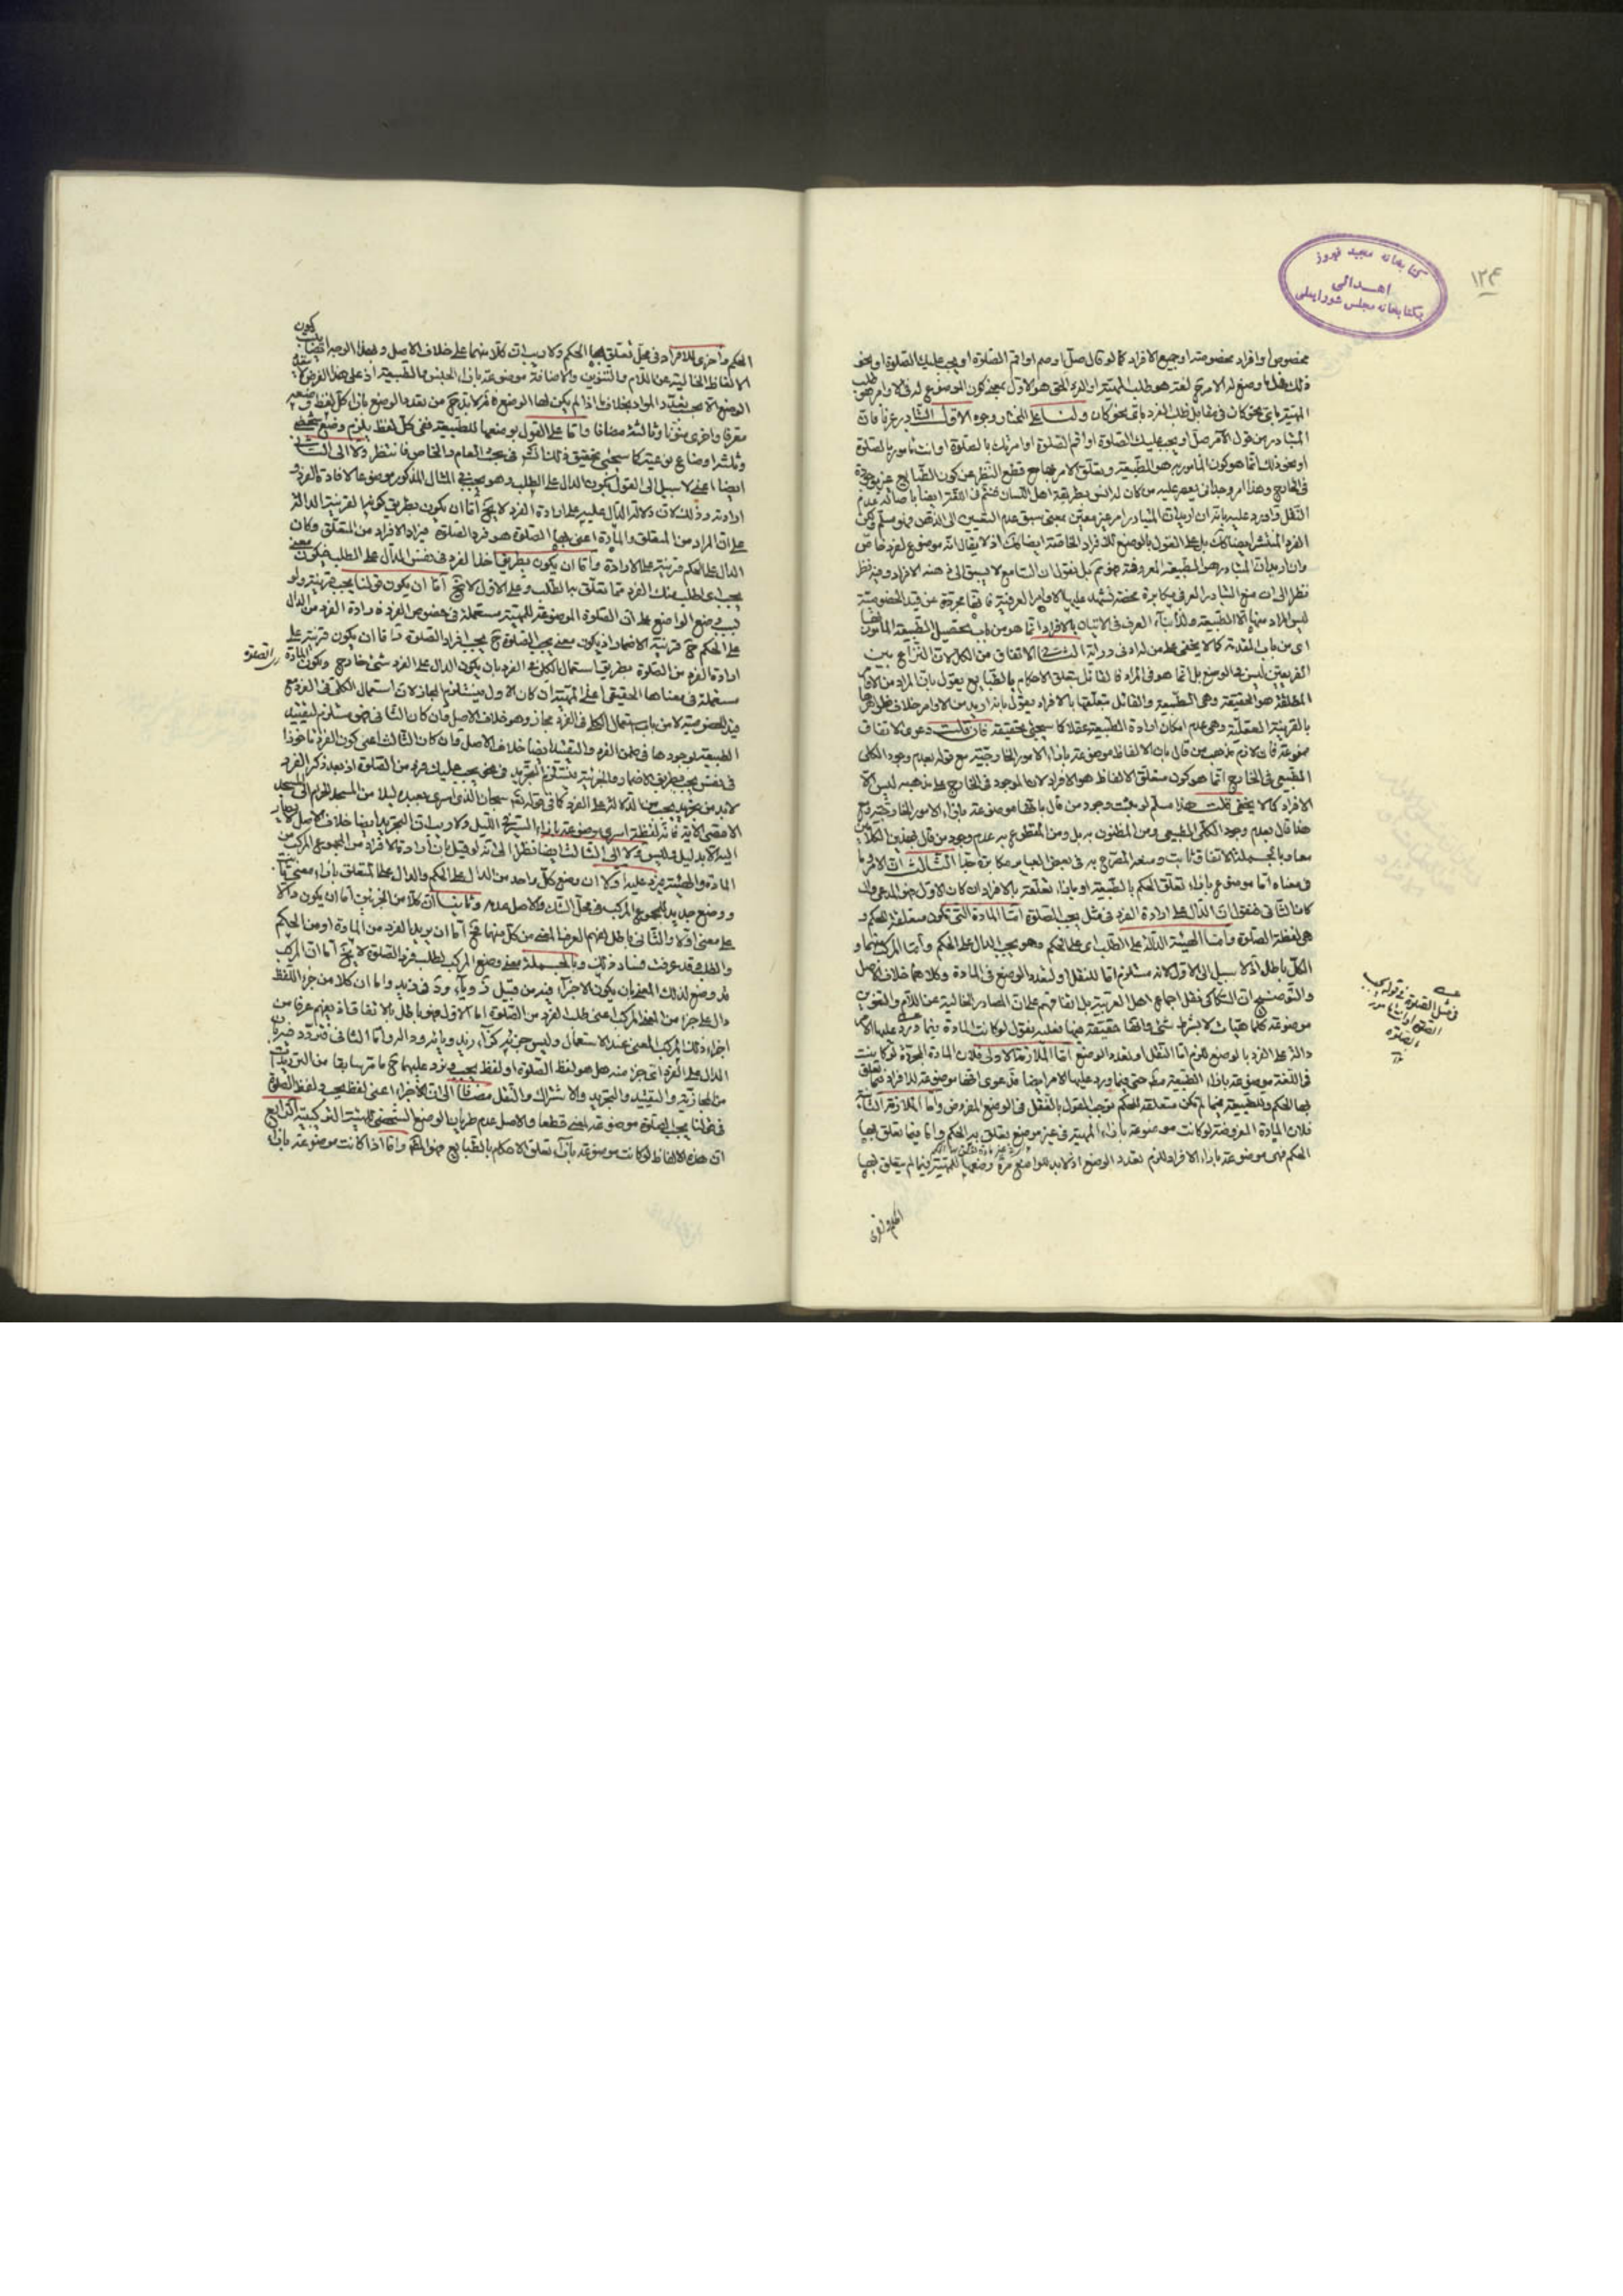 ١٢٤
كتابخانه مجيد فيروز
اهدائى
بكتابخانه مجلس شورايملى
مخصوص او افراد مخصوصة او جميع الافراد كما لو قال صل او صم او اقم الصلوة او يجب عليك الصلوة او نحو
ذلك فهل ما وضع له الامر لغة هو طلب المهية او الفرد الحق هو الاول بمعنى كون الموضوع له فى الاوامر هو طلب
المهية باى نحو كان فى مقابل طلب الفرد باى نحو كان ولنا على المختار وجوه الاول التبادر عرفا فان
المتبادر من قول الآمر صل او يجب عليك الصلوة او اقم الصلوة او امرتك بالصلوة او انت مأمور بالصلوة
او نحو ذلك انما هو كون المأمور به هو الطبيعة وتعلق الامر بها مع قطع النظر عن كون الطبايع غير موجودة
فى الخارج وهذا امر وجدانى يعترف عليه من كان له انس بطريقة اهل اللسان فيتم فى اللغة ايضا باصالة عدم
النقل واورد عليه بانه ان اريد ان المتبادر امر غير معين بمعنى سبق عدم التعيين الى الذهن فهو مسلم ولكن
الفرد المنتشر ايضا كك بل على القول بالوضع للافراد الخاصة ايضا كك اذ لا يقال انه موضوع لفرد خاص
وان اريد ان المتبادر هو الطبيعة المعروفة فهو ثم بل نقول ان السامع لا يسبق الى ذهنه الافراد وفيه نظر
نظرا الى ان منع التبادر العرفى مكابرة محضة تشهد عليها الاوامر العرفية فانها مجردة عن قيد الخصوصية
ليس المراد منها الا الطبيعة وبناء العرف فى الاتيان بالافراد انما هو من باب تحصيل الطبيعة المأمور بها
اى من باب المقدمة كما لا يخفى على من له ادنى دراية الثانى الاتفاق من الكل لان النزاع بين
الفريقين ليس فى الوضع بل انما هو فى المراد فالقائل بتعلق الاحكام بالطبايع يقول بان المراد من الاوامر
المطلقة هو الحقيقة وهى الطبيعة والقائل بتعلقها بالافراد يقول بانه اريد من الاوامر خلاف ظواهرها
بالقرينة العقلية وهى عدم امكان ارادة الطبيعة عقلا كما سيجئ تحقيقه فان قلت دعوى الاتفاق
ممنوعة فان لازم مذهب من قال بان الالفاظ موضوعة بازاء الامور الخارجية مع قوله بعدم وجود الكلى
الطبيعى فى الخارج انما هو كون متعلق الالفاظ هو الافراد لان الموجود فى الخارج على مذهبه ليس الا
الافراد كما لا يخفى قلت هذا مسلم لو ثبت وجود من قال بانها موضوعة بازاء الامور الخارجية ومع
هذا قال بعدم وجود الكلى الطبيعى ومن المظنون به بل ومن المقطوع به عدم وجود من قال بهذين الكلامين
معا وبالجملة الاتفاق ثابت ومعه المصرح به فى بعض العباير مكابرة جدا الثالث ان الامر ما
فى معناه اما موضوع بازاء تعلق الحكم بالطبيعة او بازاء تعلقه بالافراد ان كان الاول فهو المدعى وان
كان الثانى فنقول ان الدال على ارادة الفرد فى مثل يجب الصلوة اما المادة التى تكون متعلقة للحكم و
هى لفظة الصلوة واما الهيئة الدالة على الطلب اى على الحكم وهو يجب الدال على الحكم واما المركب منهما و
الكل باطل اذ لا سبيل الى الاول لانه مستلزم اما للنقل او لتعدد الوضع فى المادة وكلاهما خلاف الاصل
والتوضيح ان السكاكى نقل اجماع اهل العربية بل اتفاقهم على ان المصادر الخالية عن اللام والتنوين
موضوعة للماهيات لا بشرط شئ وانها حقيقة فيها فعليه نقول لو كانت المادة فيما ورد عليها الامر
دالة على الفرد بالوضع للزم اما النقل او تعدد الوضع اما الملازمة الاولى فلان المادة المجردة لو كانت
فى اللغة موضوعة بازاء الطبيعة مط حتى فيما ورد عليها الامر ايضا فدعوى انها موضوعة للافراد فيما تعلق
بها الحكم وللطبيعة فيما لم تكن متعلقة للحكم توجب القول بالنقل فى الوضع المفروض واما الملازمة الثانية
فلان المادة المفروضة لو كانت موضوعة بازاء المهية فى غير موضع يتعلق به الحكم واما فيما تعلق بها
الحكم فهى موضوعة بازاء الافراد للزم تعدد الوضع اذ لا بد للواضع مرة وضعها للمهية فيما لم يتعلق بها
الحكم واخرى
فى مثل الصلوة فى قوله يجب
الصلوة
الحكم واخرى للافراد فى محل تعلق بها الحكم ولا ريب ان كلا منهما على خلاف الاصل وبهذا الوجه ايضا يثبت كون
الالفاظ الخالية عن اللام والتنوين والاضافة موضوعة بازاء الجنس والطبيعة اذ على هذا الفرض
الوضع الا بحسب تعدد المواد بخلاف ما اذا لم يكن لها الوضع
معرفا واخرى منونا وثالثة مضافا واما على القول بوضعها للطبيعة ففى كل لفظ يلزم وضع شخصى
وثلثة اوضاع نوعية كما سيجئ تحقيق ذلك انش فى بحث العام والخاص فانتظر ولا الى الثانى
ايضا اعنى لا سبيل الى القول بكون الدال على الطلب وهو يجب فى المثال المذكور موضوعا لافادة الفرد و
ارادته وذلك لان دلالة الدال عليه على ارادة الفرد لا يخ اما ان يكون بطريق كونها القرينة الدالة
على ان المراد من المتعلق والمادة اعنى بها الصلوة هو فرد الصلوة فيراد الافراد من المتعلق وكان
الدال على الحكم قرينة على الارادة واما ان يكون بطريق اخذ الفرد فى نفس الدال على الطلب فيكون معنى
يجب اى اطلب منك الفرد مما تعلق به الطلب وعلى الاول لا يخ اما ان يكون قولنا يجب قرينة ولو
بوضع الواضع على ان الصلوة الموضوعة للمهية مستعملة فى خصوص الفرد فارادة الفرد من الدال
على الحكم ح قرينة الاضمار اذ يكون معنى يجب الصلوة ح يجب افراد الصلوة واما ان يكون قرينة على
ارادة الفرد من الصلوة بطريق استعمال الكلى فى الفرد بان يكون الدال على الفرد شئ خارج ويكون المادة
مستعملة فى معناها الحقيقى اعنى المهية ان كان الاول فيستلزم المجاز لان استعمال الكلى فى الفرد مع
قيد الخصوصية لا من باب استعمال الكلى فى الفرد مجاز وهو خلاف الاصل وان كان الثانى فهو مستلزم لتقييد
الطبيعة بوجودها فى ضمن الفرد والتقييد ايضا خلاف الاصل وان كان الثالث اعنى كون الفرد مأخوذا
فى نفس يجب بطريق الاضمار والجزئية يستلزم التجريد فى نحو يجب عليك فرد من الصلوة اذ بعد ذكر الفرد
لا بد من تجريد يجب من الدلالة على الفرد كما فى قوله تع سبحان الذى اسرى بعبده ليلا من المسجد الحرام الى المسجد
الاقصى الآية فان لفظة اسرى موضوعة بازاء السير فى الليل ولا ريب ان التجريد ايضا خلاف الاصل لا يصار
اليه الا بدليل وليس ولا الى الثالث ايضا نظرا الى انه لو قيل بان ارادة الافراد من المجموع المركب من
المادة والهيئة يرد عليه اولا ان وضع كل واحد من الدال على الحكم والدال على المتعلق بازاء معنى ثابت
ووضع جديد للمجموع المركب فى محل الشك والاصل عدمه وثانيا ان كلا من الجزئين اما ان يكون دالا
على معنى او لا والثانى باطل لفهم العرف المعنى من كل منهما فح اما ان يريد الفرد من المادة او من الحكم
والطلب وقد عرفت فساد ذلك وبالجملة معنى وضع المركب لطلب فرد الصلوة لا يخ اما ان المركب
قد وضع لذلك المعنى بان يكون الاجزاء فيه من قبيل ز وياء ود فى زيد واما ان كلا من جزء اللفظ
دال على جزء من المعنى المركب اعنى طلب الفرد من الصلوة اما الاول فهو باطل بالاتفاق اذ يفهم عرفا من
اجزاء ذلك المركب المعنى عند الاستعمال وليس جزئيه كزاء زيد ويائه وداله واما الثانى فنردد فيه بان
الدال على الفرد اى جزء منه هل هو لفظ الصلوة او لفظ يجب ويرد عليهما ح ما مر سابقا من الترديد
من المجازية والتقييد والتجريد والاشتراك والنقل مضافا الى ان الاجزاء اعنى لفظ يجب ولفظ الصلوة
فى قولنا يجب الصلوة موضوعة لمعنى قطعا والاصل عدم طريان الوضع الشخصى للهيئة التركيبية الرابع
ان هذه الالفاظ لو كانت موضوعة بازاء تعلق الاحكام بالطبايع فهو المط واما اذا كانت موضوعة بازاء